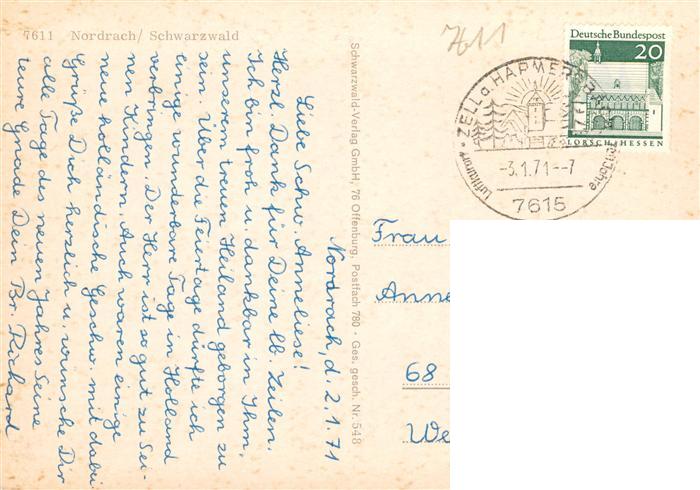 7611 Nordrach/ Schwarzwald
7611
Deutsche Bundespost
20
LORSCH/HESSEN
ZELL a. HARMERSBACH
Luftkurort
-3.1.71--7
7615
Schwarzwald-Verlag GmbH, 76 Offenburg, Postfach 780 · Ges. gesch. Nr. 548
Nordrach, d. 2.1.71
Liebe Schw. Anneliese!
Herzl. Dank für Deine lb. Zeilen.
Ich bin froh u. dankbar in Ihm,
unserem treuen Heiland geborgen zu
sein. Über die Feiertage durfte ich
einige wunderbare Tage in Holland
verbringen. Der Herr ist so gut zu Sei-
nen Kindern. Auch waren einige
neue holländische Geschw. mit dabei
Grüße Dich herzlich u. wünsche Dir
alle Tage des neuen Jahres Seine
teure Gnade Dein Br. Richard
Frau
Anne
68
We